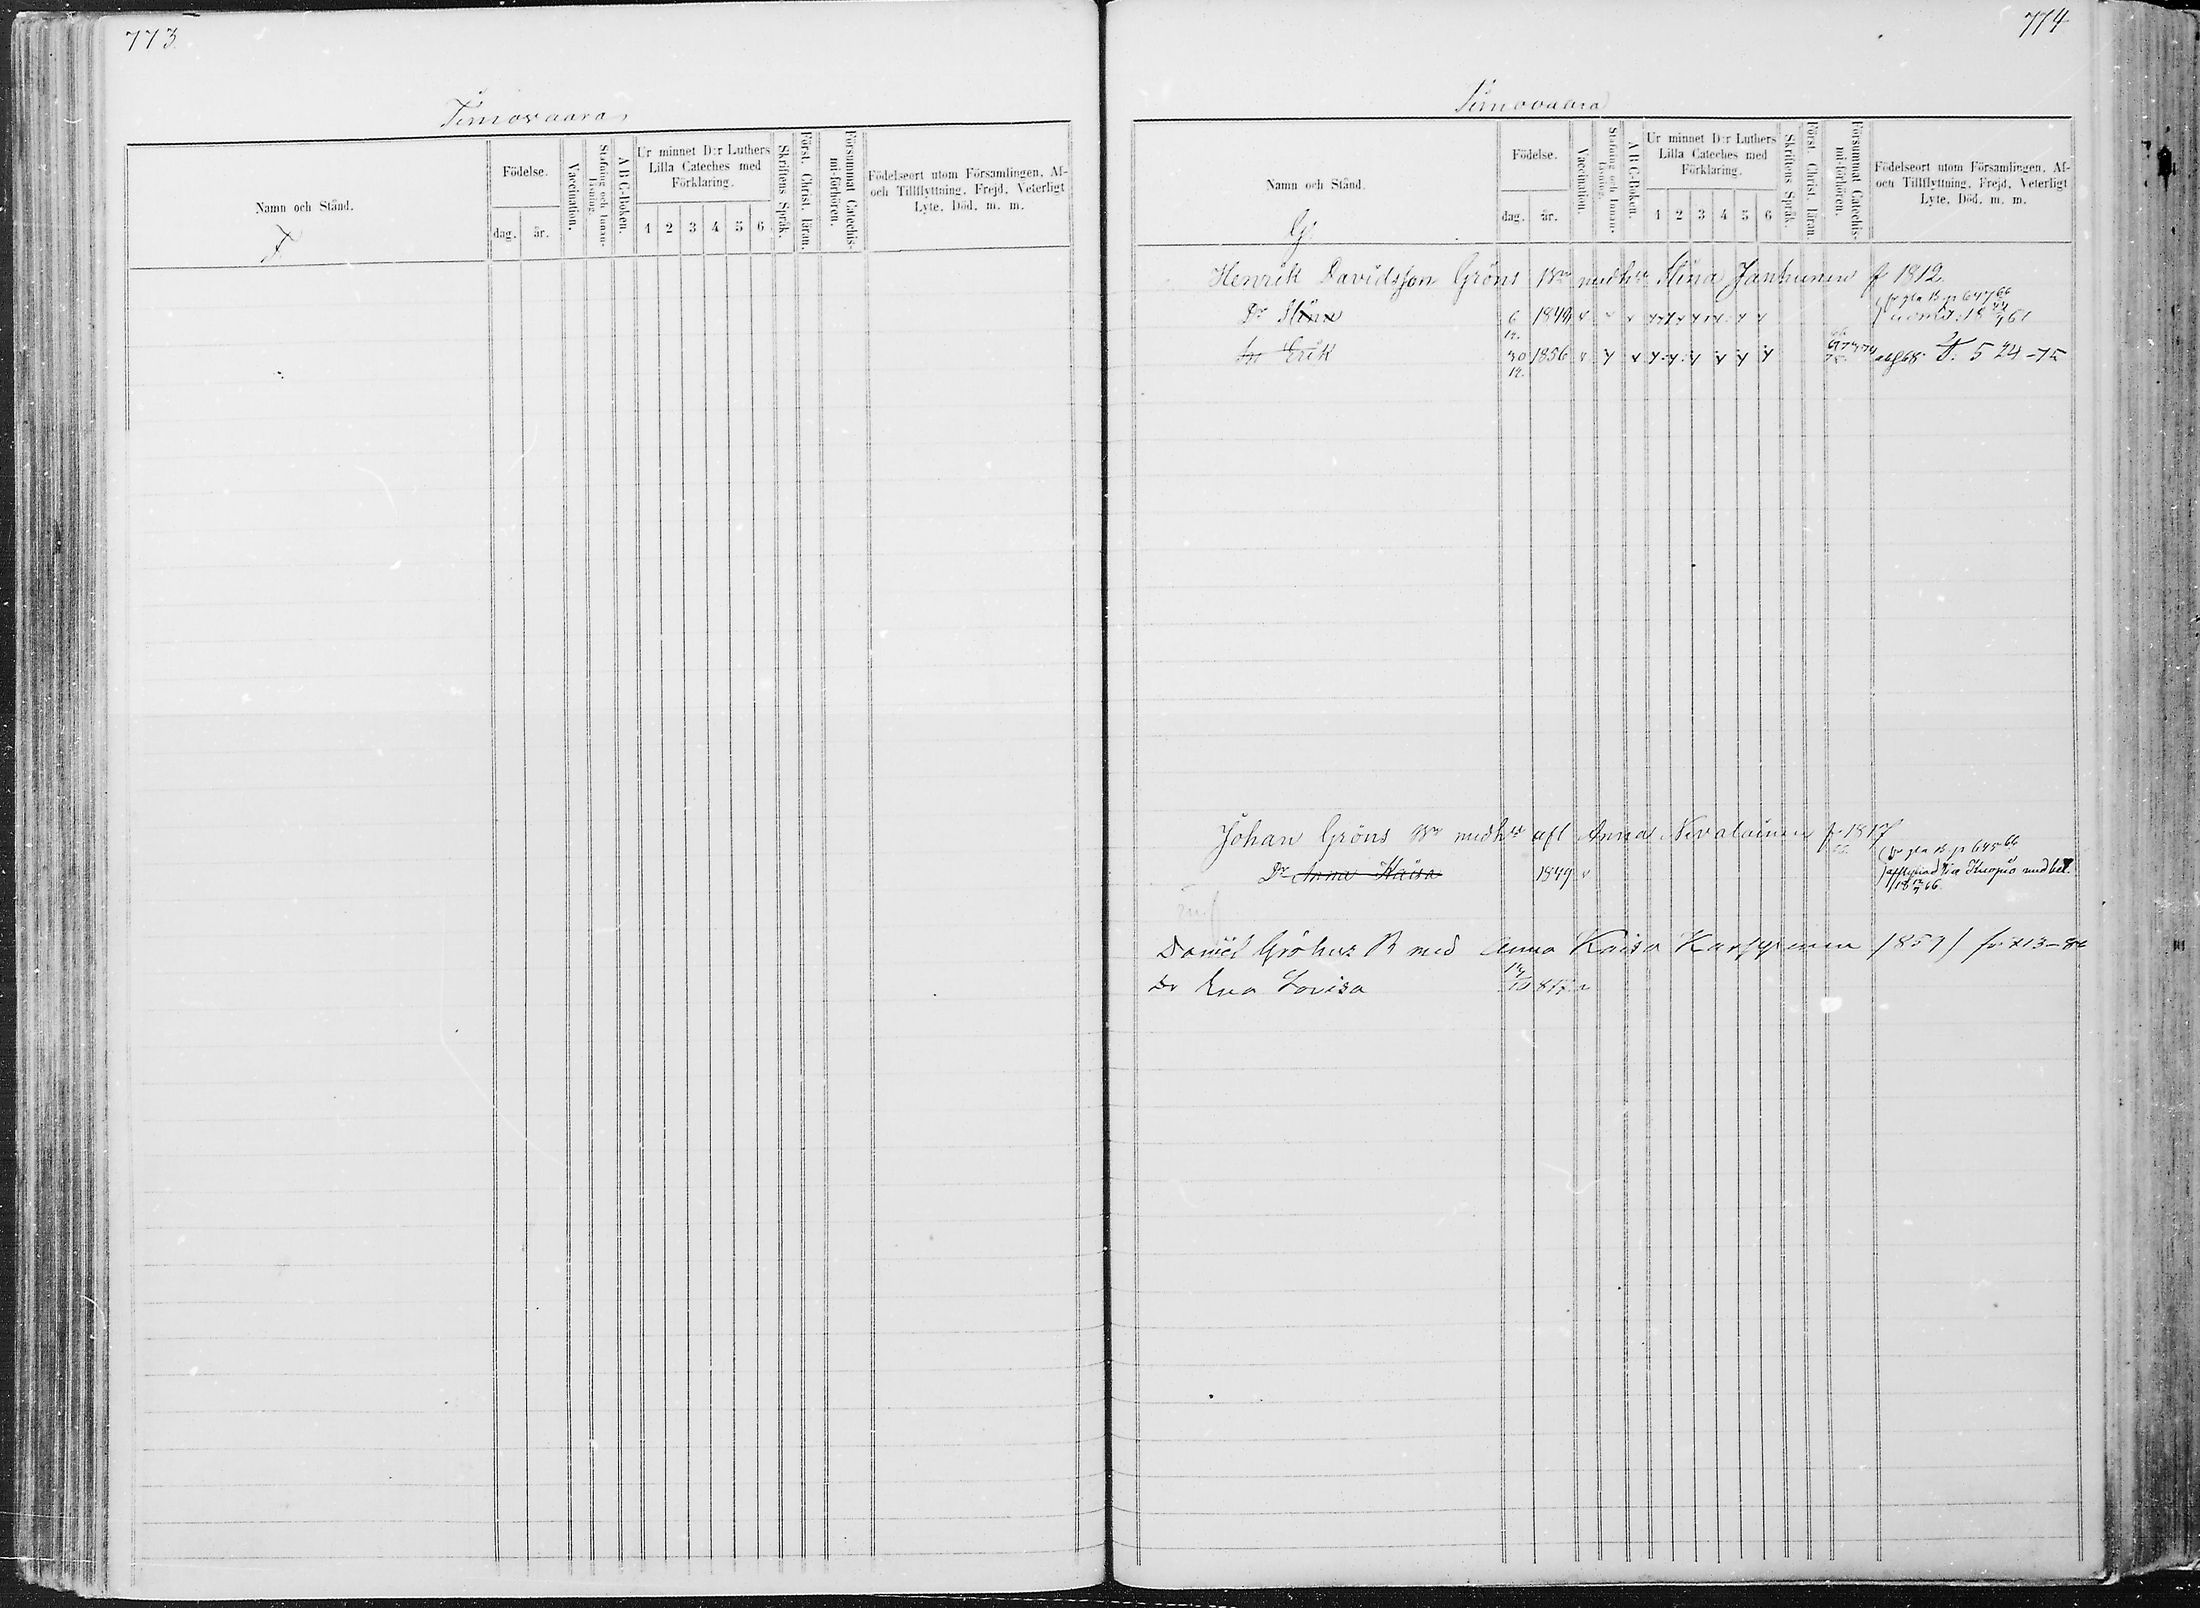 773
Timovaara
Namn och Stånd.
F.
Födelse.
dag. år.
Vaccination.
Stafning och Innan-
läsning.
A B C-Boken.
Ur minnet D:r Luthers
Lilla Cateches med
Förklaring.
1 2 3 4 5 6
Skriftens Språk.
Först. Christ. läran.
Försummat Catechis-
mi-förhören.
Födelseort utom Församlingen, Af-
och Tillflyttning, Frejd, Veterligt
Lyte, Död, m. m.
774
Timovaara
Namn och Stånd.
G.
Födelse.
dag. år.
Vaccination.
Stafning och Innan-
läsning.
A B C-Boken.
Ur minnet D:r Luthers
Lilla Cateches med
Förklaring.
1 2 3 4 5 6
Skriftens Språk.
Först. Christ. läran.
Försummat Catechis-
mi-förhören.
Födelseort utom Församlingen, Af-
och Tillflyttning, Frejd, Veterligt
Lyte, Död, m. m.
Henrik Davidsson Gröns Bn med h Stina Janhunen f 1812
Dr Stina 6 12. 1849
Erik 30 12. 1856 524-75
Johan Gröns Bn med h afl Anna Nevalainen f. 1817
Dr Anna Kaisa 1849 afflyttad Kuopio med bet.
Daniel Gröhns B med Anna Kaisa Karppinen /859/
Dr Eva Lovisa 10 877